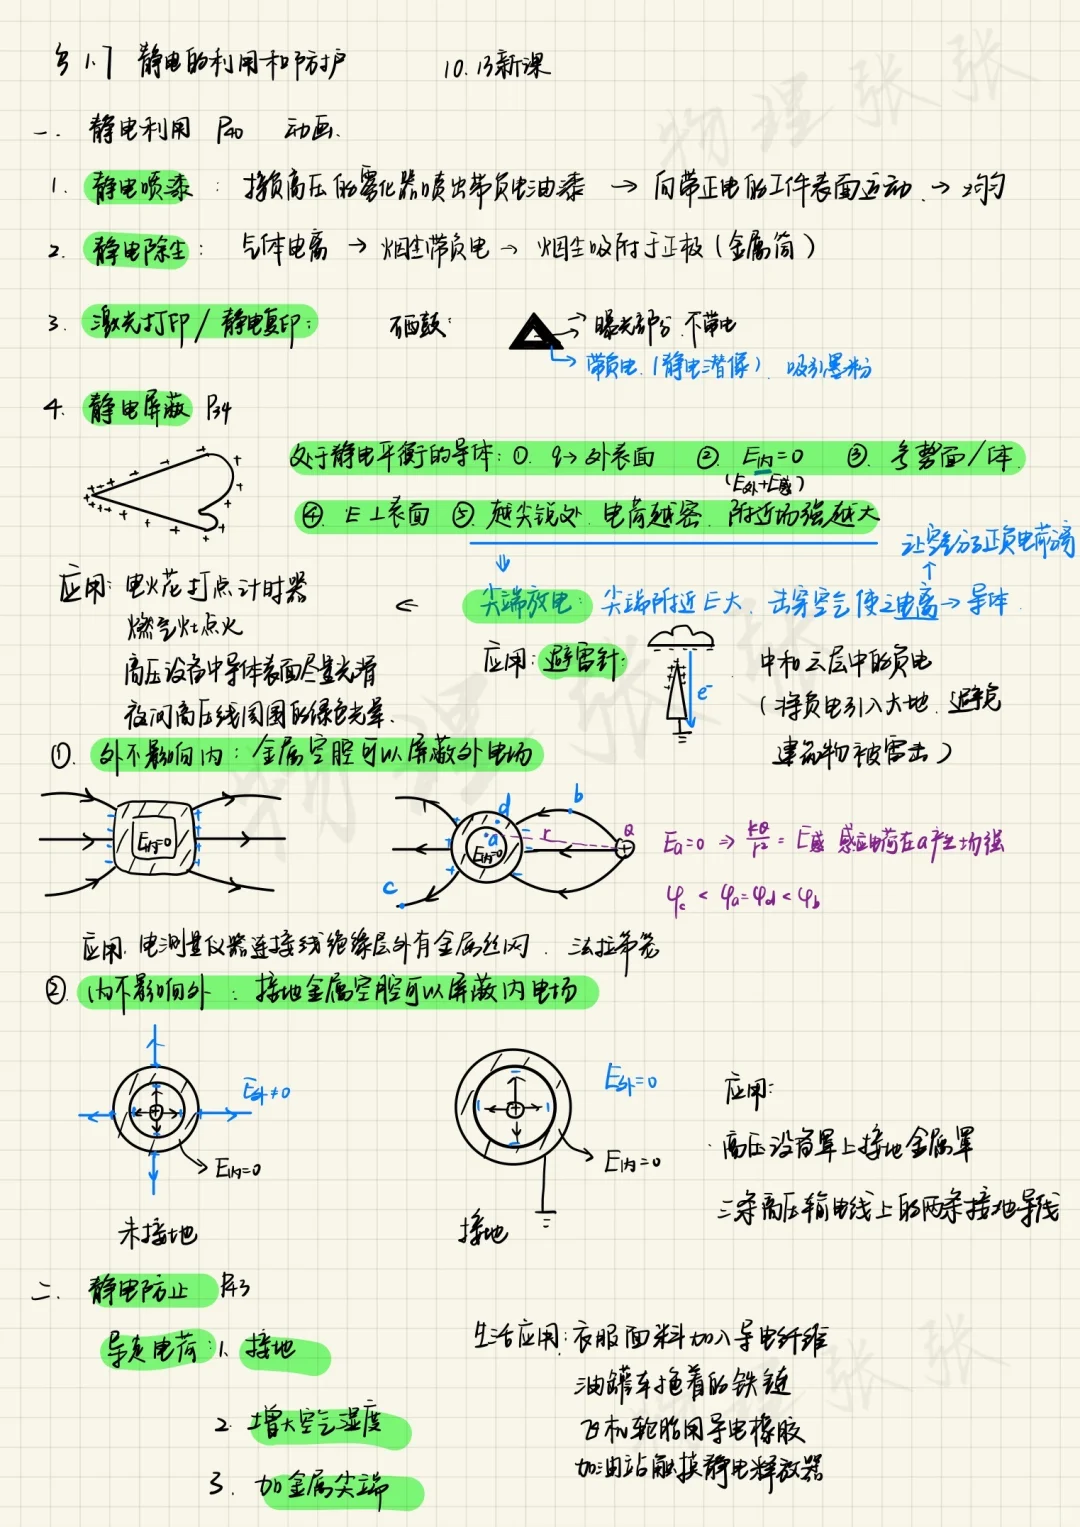 §1.7 静电的利用和防护 10.13新课
一. 静电利用 P40 动画.
1. 静电喷漆: 接负高压的雾化器喷出带负电油漆 → 向带正电的工件表面运动. → 均匀
2. 静电除尘: 气体电离 → 烟尘带负电 → 烟尘吸附于正极(金属筒)
3. 激光打印/静电复印: 硒鼓: → 曝光部分.不带电
→ 带负电.(静电潜像). 吸引墨粉
4. 静电屏蔽 P34
处于静电平衡的导体: ①. q→外表面 ②. E内=0 ③. 等势面/体.
(E外+E感)
④. E⊥表面 ⑤. 越尖锐处.电荷越密.附近场强越大
让空气分子正负电荷分离
尖端放电: 尖端附近E大. 击穿空气使之电离→导体.
应用: 电火花打点计时器
燃气灶点火
高压设备中导体表面尽量光滑
夜间高压线周围的绿色光晕.
应用: 避雷针: e⁻
中和云层中的负电
(将负电引入大地.避免
建筑物被雷击)
①. 外不影响内: 金属空腔可以屏蔽外电场
E内=0
a b c d r Q E内=0
Ea=0 ⇒ kQ/r² = E感 感应电荷在a产生场强
φc < φa=φd < φb
应用. 电测量仪器连接线绝缘层外有金属丝网. 法拉第笼
②. 内不影响外: 接地金属空腔可以屏蔽内电场
E外≠0
E内=0
未接地
E外=0
E内=0
接地
应用:
·高压设备罩上接地金属罩
三条高压输电线上的两条接地导线
二. 静电防止 P43
导走电荷: 1. 接地
2. 增大空气湿度
3. 加金属尖端
生活应用: 衣服面料加入导电纤维
油罐车拖着的铁链
飞机轮胎用导电橡胶
加油站触摸静电释放器
物理张张
物理张张
物理张张